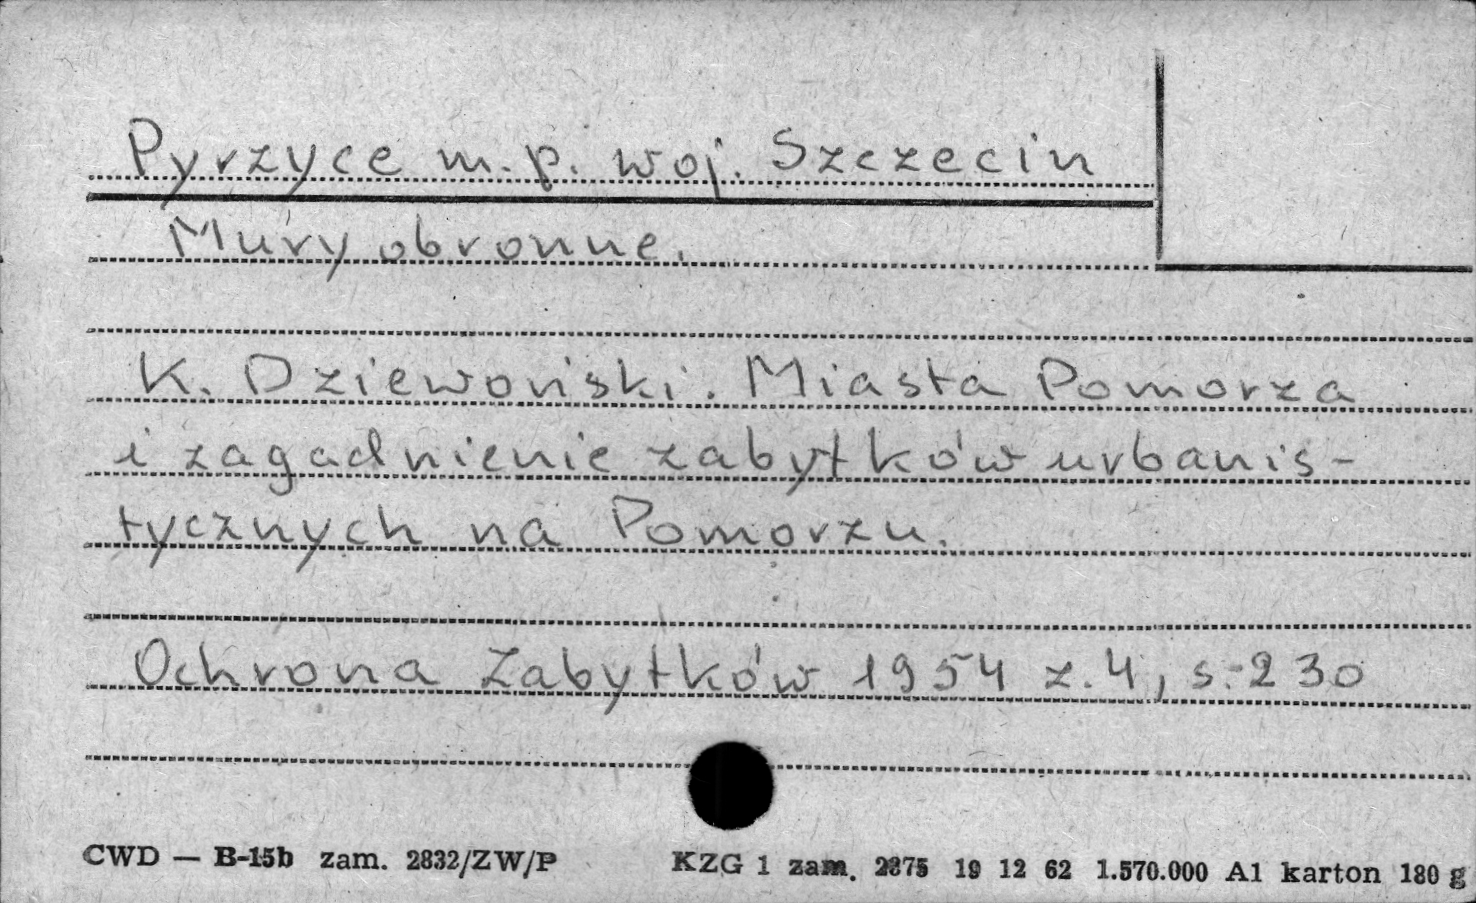 Pyrzyce m.p. woj. Szczecin
Mury obronne.
K. Dziewoński. Miasta Pomorza
i zagadnienie zabytków urbanis-
tycznych na Pomorzu.
Ochrona Zabytków 1954 z.4, s. 230
CWD — B-15b zam. 2832/ZW/P KZG 1 zam. 2875 19 12 62 1.570.000 A1 karton 180 g